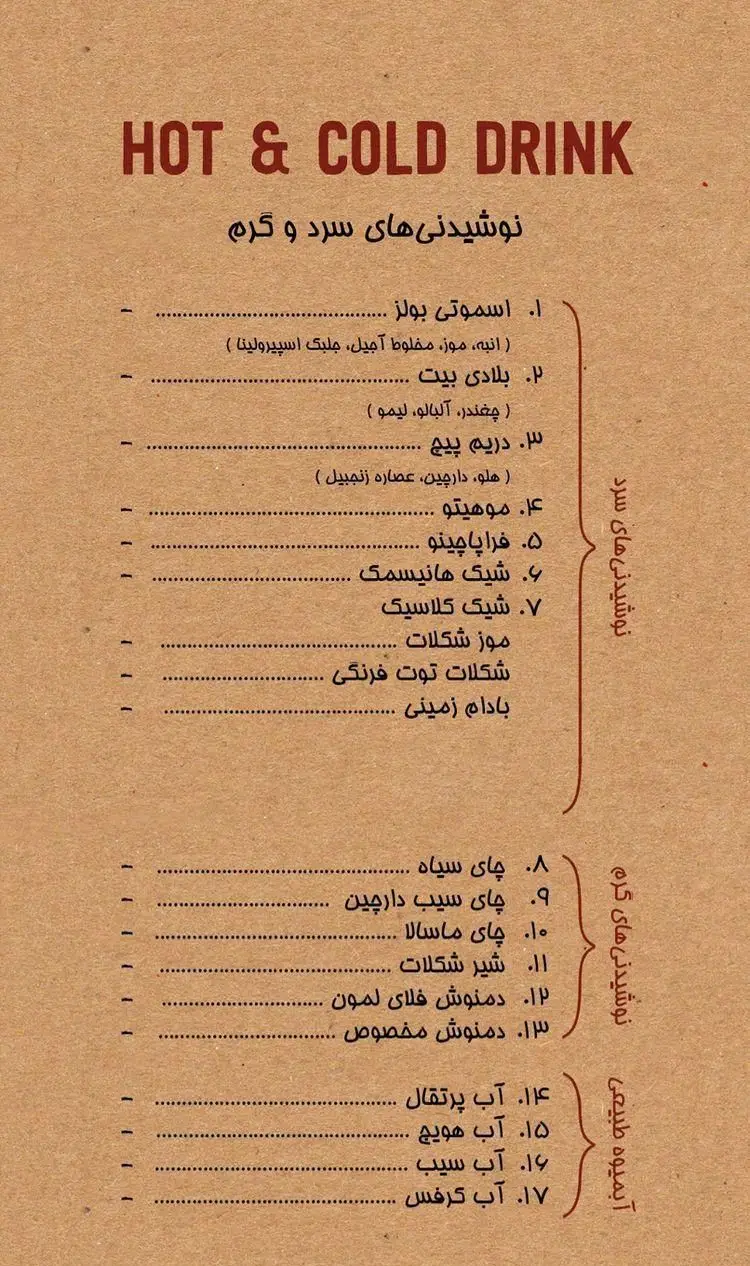 HOT & COLD DRINK
نوشیدنی‌های سرد و گرم
نوشیدنی‌های سرد
۱. اسموتی بولز ........................................ -
( انبه، موز، مخلوط آجیل، جلبک اسپیرولینا )
۲. بلادی بیت ........................................ -
( چغندر، آلبالو، لیمو )
۳. دریم پیچ ........................................ -
( هلو، دارچین، عصاره زنجبیل )
۴. موهیتو ........................................ -
۵. فراپاچینو ........................................ -
۶. شیک هانیسمک ........................................ -
۷. شیک کلاسیک
موز شکلات ........................................ -
شکلات توت فرنگی ........................................ -
بادام زمینی ........................................ -
نوشیدنی‌های گرم
۸. چای سیاه ........................................ -
۹. چای سیب دارچین ........................................ -
۱۰. چای ماسالا ........................................ -
۱۱. شیر شکلات ........................................ -
۱۲. دمنوش فلای لمون ........................................ -
۱۳. دمنوش مخصوص ........................................ -
آبمیوه طبیعی
۱۴. آب پرتقال ........................................ -
۱۵. آب هویج ........................................ -
۱۶. آب سیب ........................................ -
۱۷. آب کرفس ........................................ -